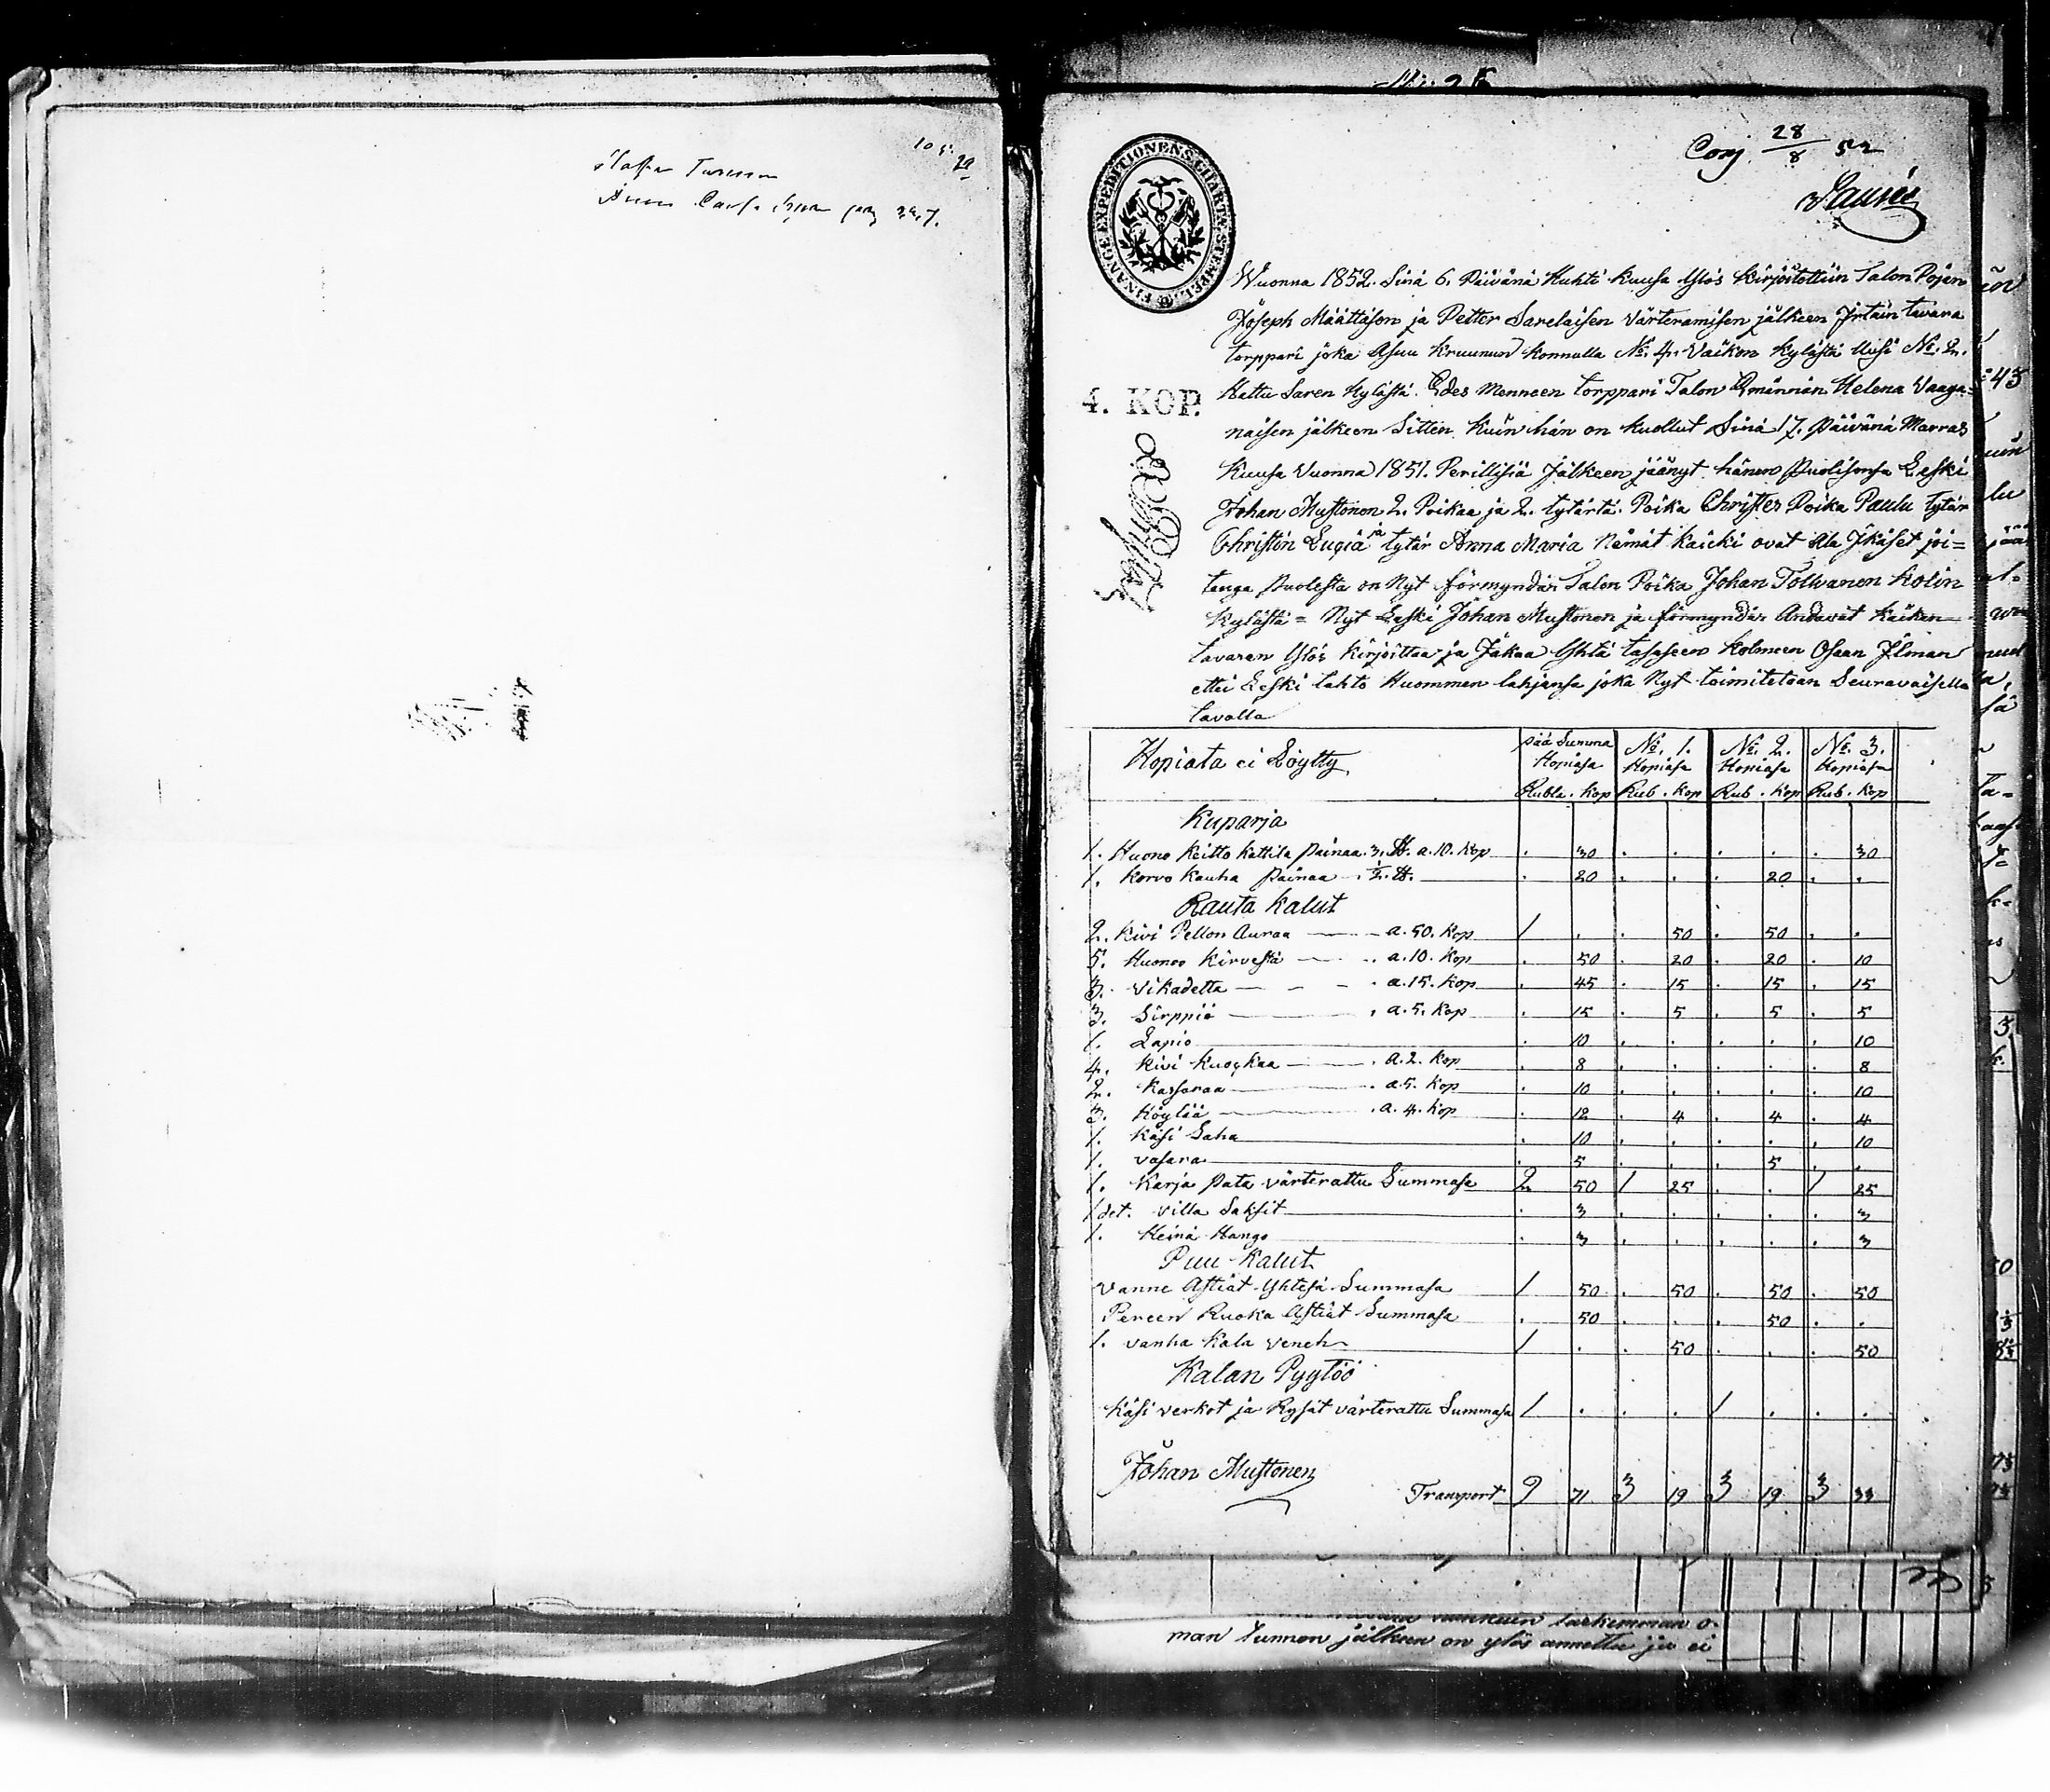 105.
29
Conj 28/8 52
FINANCE EXPEDITIONENS CHARTÆ STEMPEL
Wuonna 1852. Sinä 6. Päivänä Huhti kuusa Ylös kirjoitettiin Talon Pojan
Joseph Määttäsen ja Petter Sarelaisen värteramisen jälkeen Jrtain tavara
torppari joka Asuu kruunun konnulla No. 4. Vaikon kylästä Uusi No. 2.
4. KOP.
Hattu Saren kylästä. Edes menneen torppari Talon Emännän Helena Vaaga=
naisen jälkeen Sitten kuin hän on kuollut Sinä 17. Päivänä Marras
kuusa Vuonna 1851. Perillisiä Jälkeen jäänyt hänen Puolisonsa Leski
Johan Mustonen 2. Poikaa ja 2. tytärtä. Poika Christer Poika Paulu tytär
Christin Lugiä ja tytär Anna Maria Nämät kaicki ovat Ala Jkäset joi=
tenga Puolesta on Nyt förmyndär Talon Poika Johan Tolwanen Kolin
kylästä = Nyt Leski Johan Mustonen ja förmyndär Andavat kaiken
tavaran Ylös kirjoittaa ja Jakaa Yhtä tasaseen kolmeen Osaan Jlman
ettei Leski tahto Huommen lahjansa joka Nyt toimitetaan Seuravaisella
tavalla
Hopiata ei Löytty
pää Summa Hopiasa No. 1. Hopiasa No. 2. Hopiasa No. 3. Hopiasa
Rubla. kop Rub. kop Rub. kop Rub. kop
Kuparja
1. Huono keitto kattila painaa. 3. ℔. a. 10. kop . 30 . . . . . 30
1. korvo kauha painaa ½. ℔. . 20 . . . 20 . .
Rauta kalut
2. kivi Pellon Auraa a. 50. kop 1 . . 50 . 50 . .
5. Huonoo kirvestä a. 10. kop . 50 . 20 . 20 . 10
3. Vikadetta a. 15. kop . 45 . 15 . 15 . 15
3. Sirppiä a. 5. kop . 15 . 5 . 5 . 5
1. Lapio . 10 . . . . . 10
4. kivi kuockaa a. 2. kop . 8 . . . . . 8
2. kassaraa a. 5. kop . 10 . . . . . 10
3. köyliä a. 4. kop . 12 . 4 . 4 . 4
1. käsi Saha . 10 . . . . . 10
1. vasara . 5 . . . 5 . .
1. karja pata värterattu Summasa 2 50 1 25 . . 1 25
1 det. villa Saksit . 3 . . . . . 3
1. Heinä Hango . 3 . . . . . 3
Puu kalut
Vanne Astiat Yhtesä Summasa 1 50 . 50 . 50 . 50
Pereen Ruoka Astiat Summasa . 50 . . . 50 . .
1. vanha kala veneh 1 . . 50 . . . 50
Kalan Pyytöö
käsi verkot ja Rysät värterattu Summasa 1 . . . 1 . . .
Johan Mustonen
Transport 9 71 3 19 3 19 3 33
man tunnon jälkeen on ylös annettu ja ei